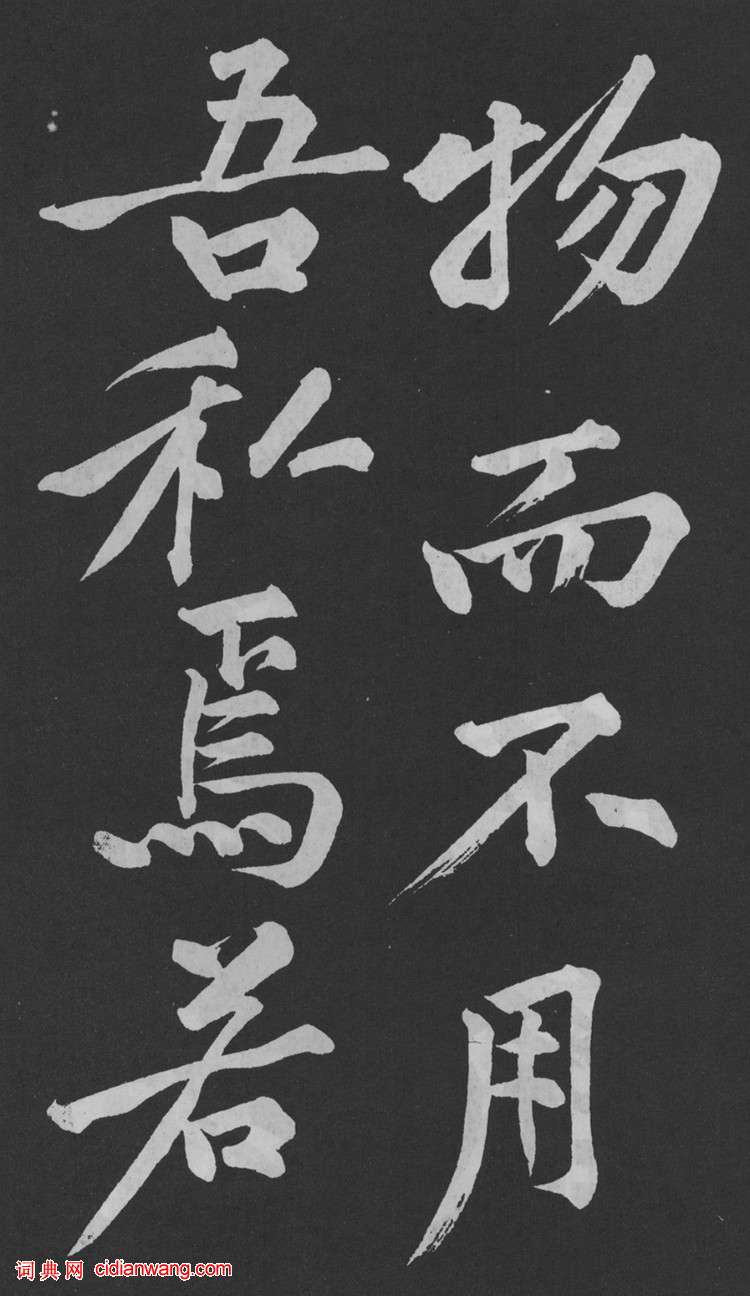 物而不用
吾私焉若
词典网 cidianwang.com